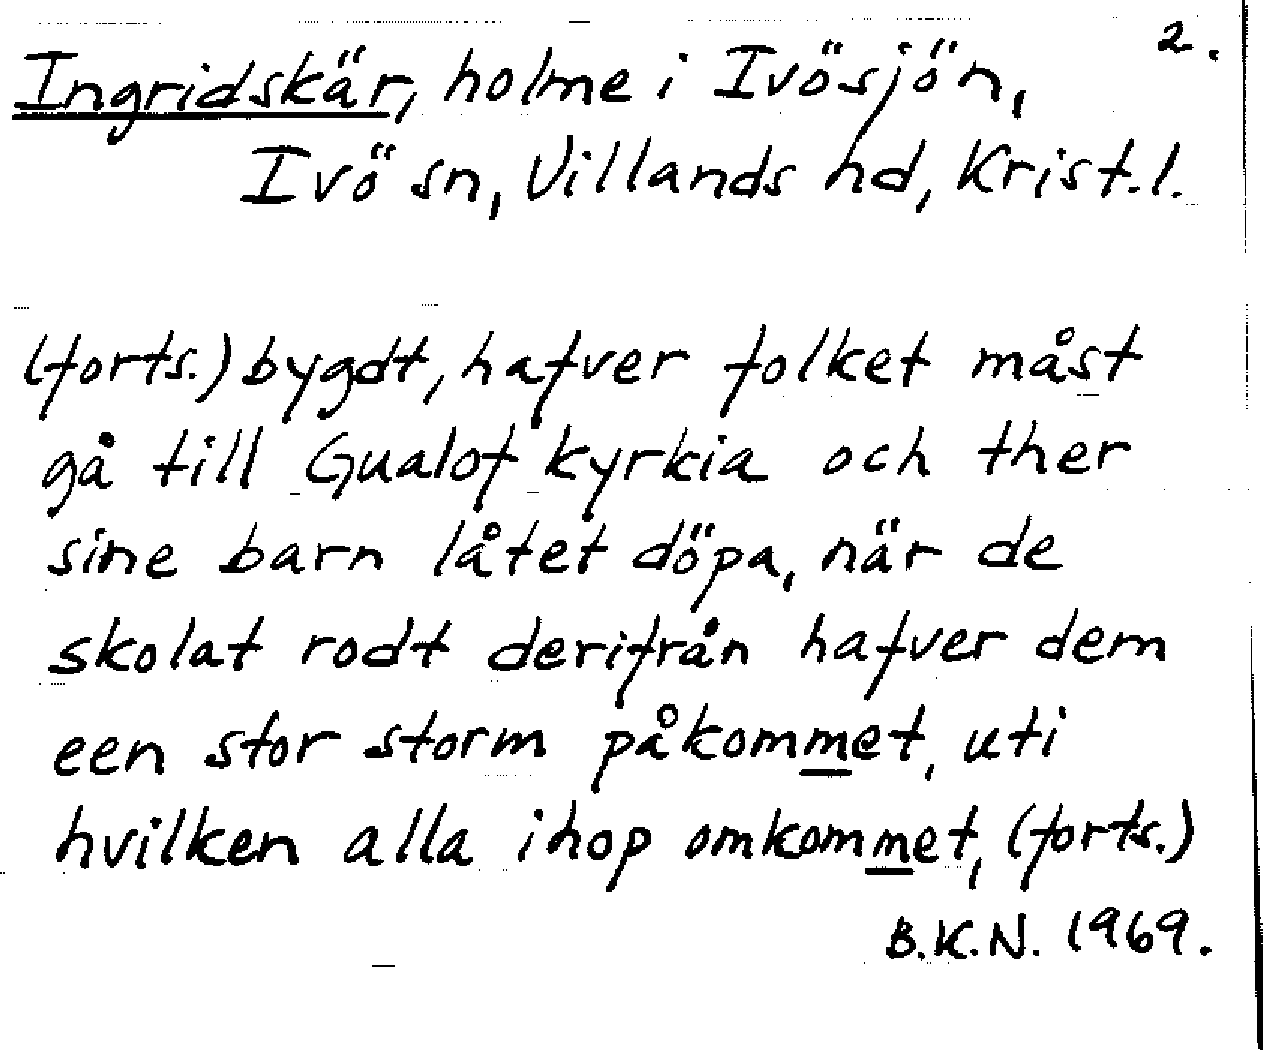 2.
Ingridskär, holme i Ivösjön,
Ivö sn, Villands hd, Krist.l.
(forts.) bygdt, hafver folket måst
gå till Gualöf kyrkia och ther
sine barn låtet döpa, när de
skolat rodt derifrån hafver dem
een stor storm påkommet, uti
hvilken alla ihop omkommet, (forts.)
B.K.N. 1969.